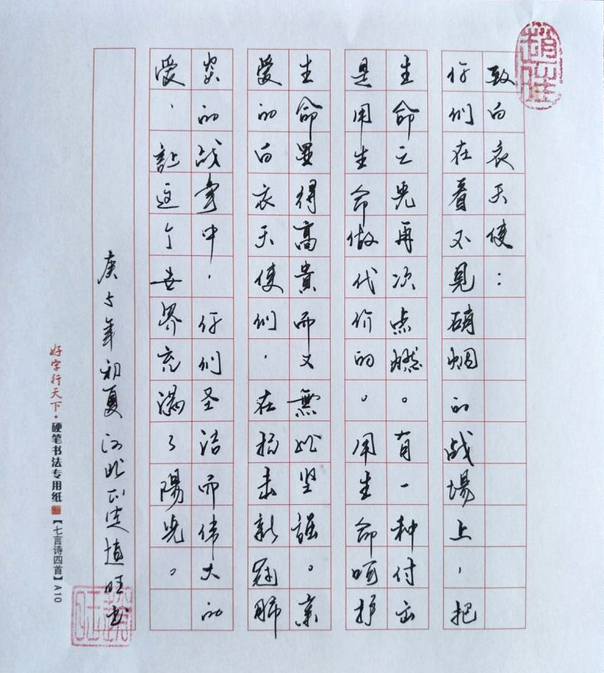 致白衣天使：
你们在看不见硝烟的战場上，把
生命之光再次点燃。有一种付出
是用生命做代价的。用生命呵护
生命显得高貴而又無比坚强。亲
爱的白衣天使们，在抗击新冠肺
炎的战争中，你们圣洁而伟大的
爱，让这个世界充满了陽光。
庚子年初夏河北正定赵旺书
好字行天下·硬笔书法专用纸【七言诗四首】A10